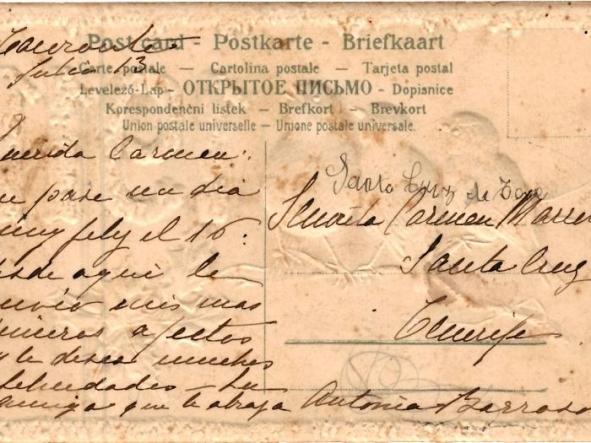 Tacoronte
Julio 13
Post card - Postkarte - Briefkaart
Carte postale — Cartolina postale — Tarjeta postal
Levelező-Lap - ОТКРЫТОЕ ПИСЬМО - Dopisnice
Korespondenčni listek — Brefkort — Brevkort
Union postale universelle — Unione postale universale.
Querida Carmen:
que pase un dia
muy feliz el 16:
desde aquí le
envío mis mas
sinceros afectos
y le deseo muchas
felicidades — Su
amiga que le abraza Antonia Barroso
Santo Cruz de
Señorita Carmen
Santa Cruz
Tenerife